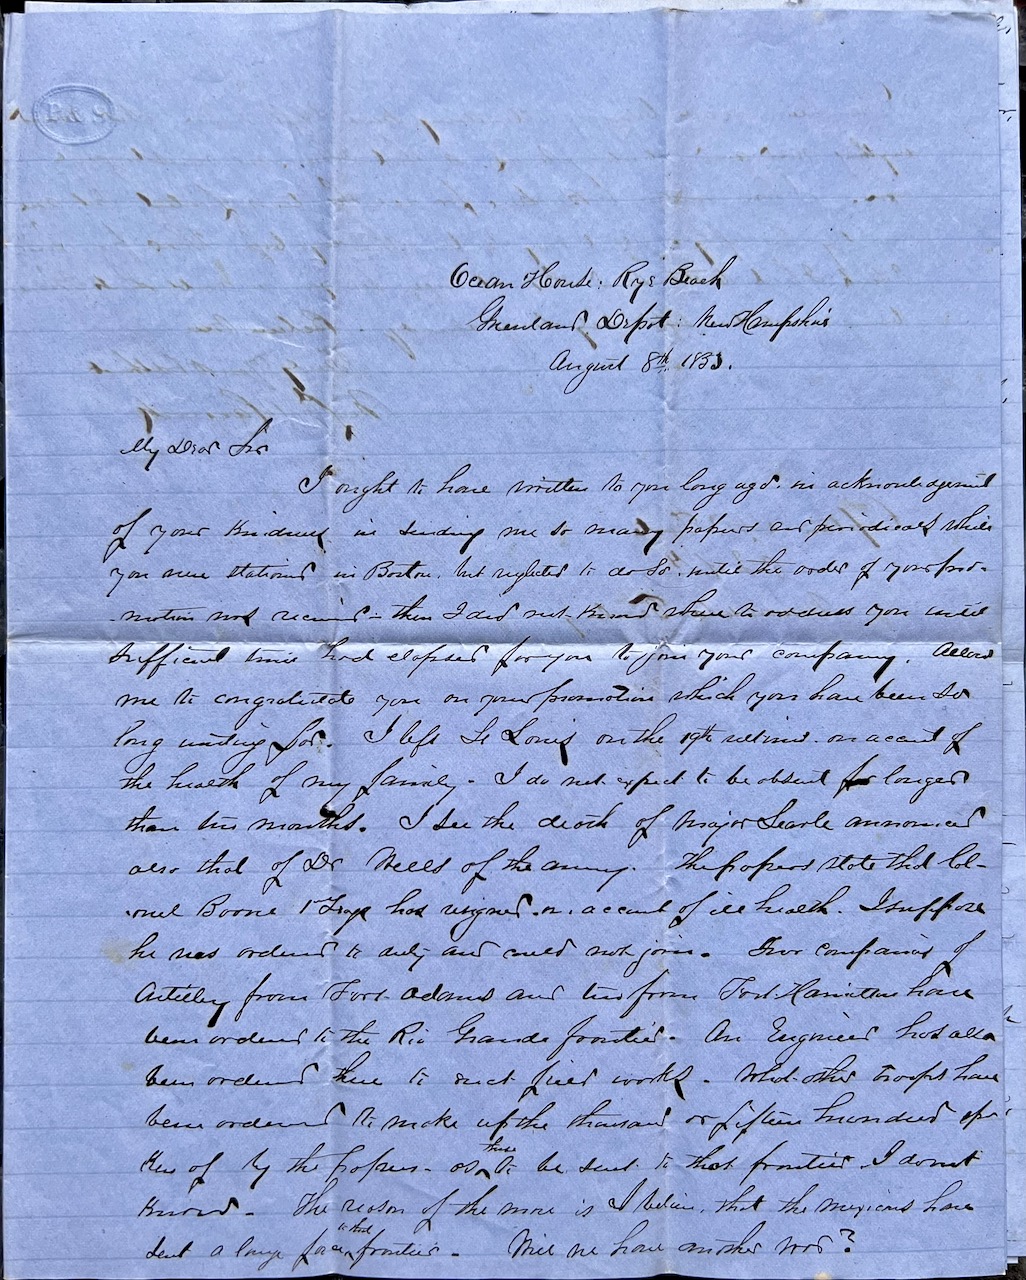 P & S
Ocean House: Rye Beach
Greenland Depot: New Hampshire
August 8th. 1853.
My Dear Sir
I ought to have written to you long ago. in acknowledgement
of your kindness in sending me so many papers and periodicals while
you were stationed in Boston. but neglected to do so. until the order of your pro-
-motion was received - then I did not know where to address you until
sufficient time had elapsed for you to join your company. Allow
me to congratulate you on your promotion which you have been so
long waiting for. I left St Louis on the 19th ultimo. on account of
the health of my family - I do not expect to be absent for longer
than two months. I see the death of Major Searle announced
also that of Dr Wells of the army. The papers state that Col-
-onel Boone 1st Drags has resigned on account of ill health. I suppose
he was ordered to duty and could not join. Two companies of
Artillery from Fort Adams and two from Fort Hamilton have
been ordered to the Rio Grande frontier. An Engineer has also
been ordered there to erect field works. What other troops have
been ordered to make up the thousand or fifteen hundred spo-
ken of by the papers - as these to be sent to that frontier I do not
know - The reason of the move is I believe, that the mexicans have
sent a large force to that frontier - Will we have another war?